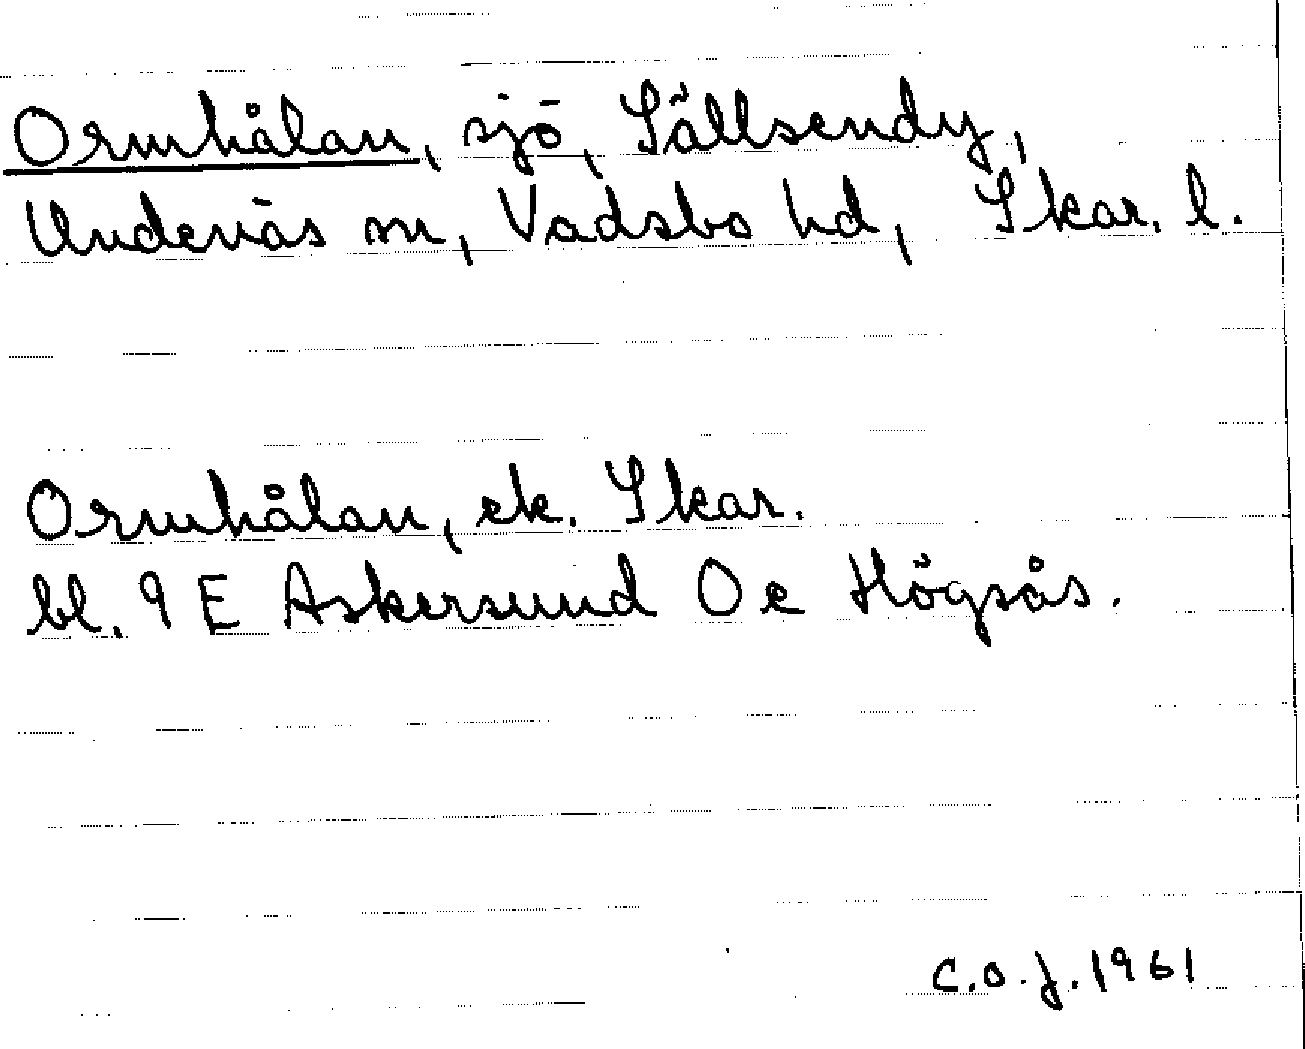 Ormhålan, sjö, Sällsendy,
Undenäs sn, Vadsbo hd, Skar. l.
Ormhålan, ek. Skar.
bl. 9 E Askersund O e Högsås.
C.O.J. 1961